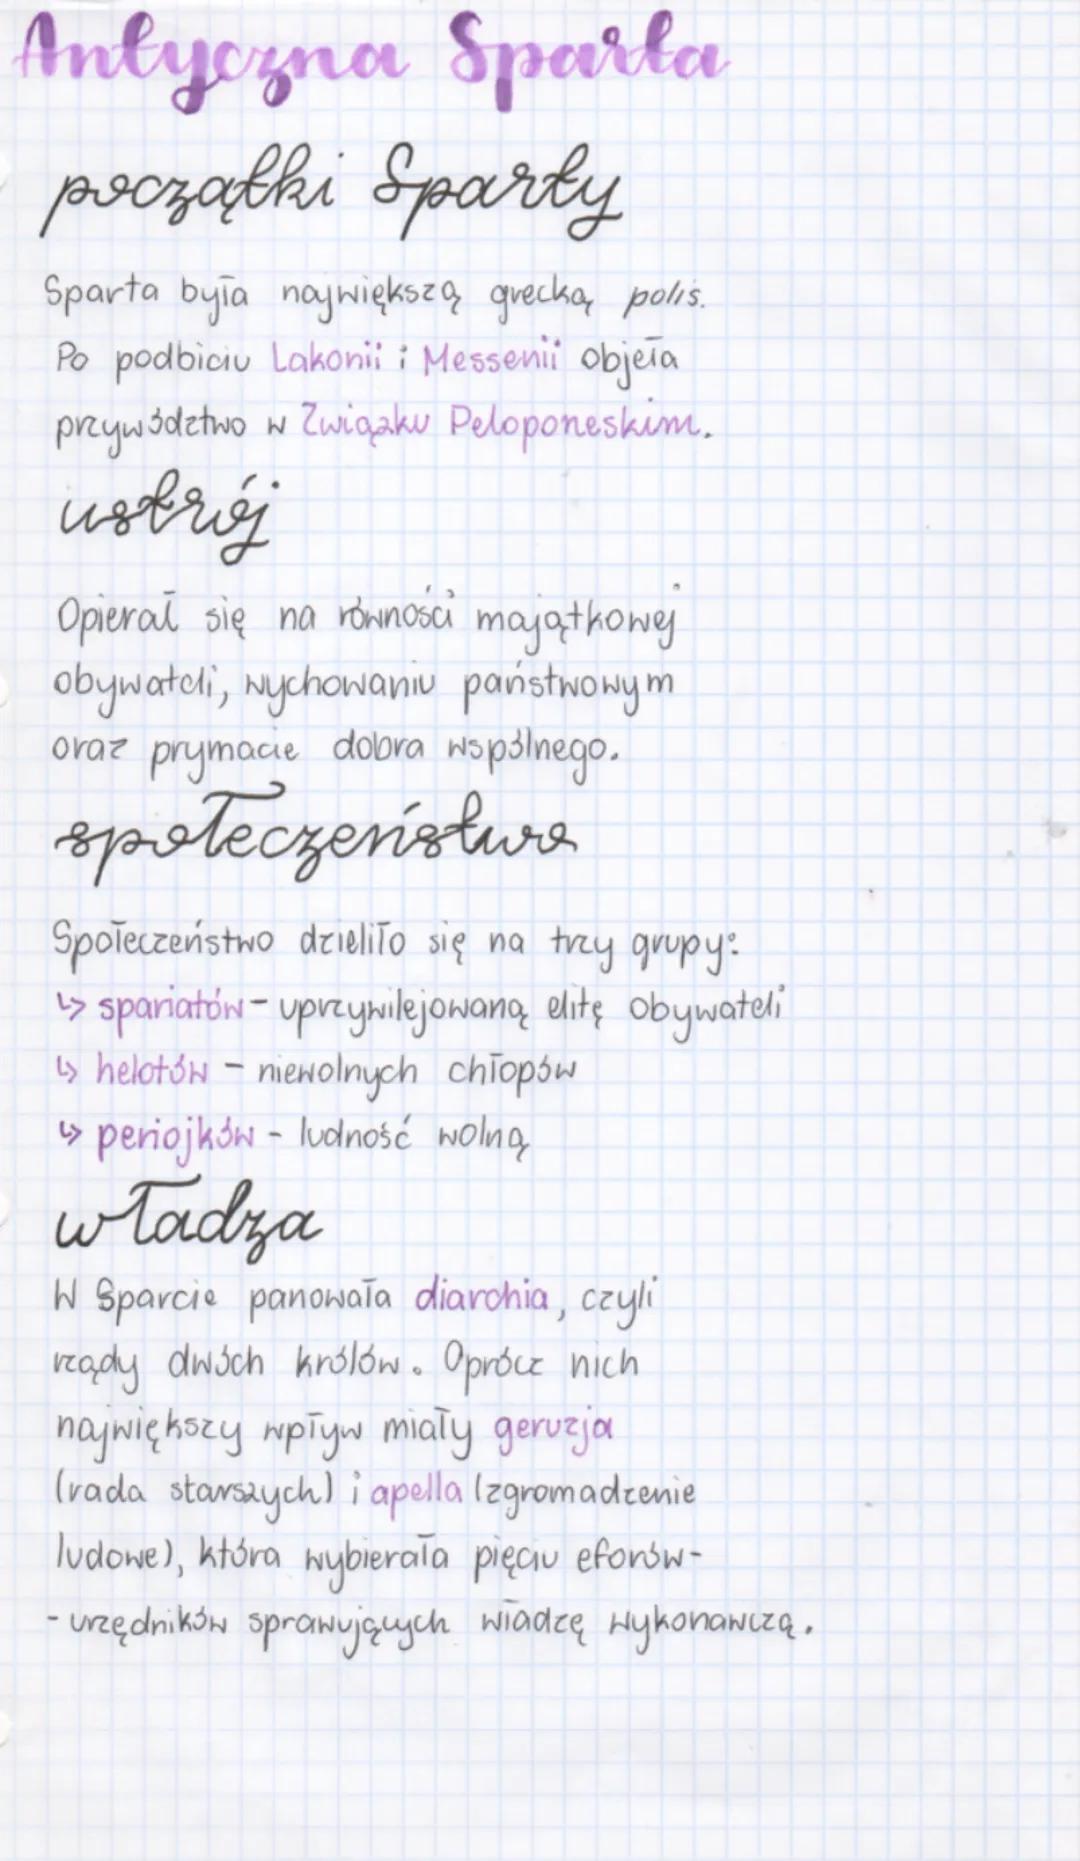 Antyczna Sparta
początki Sparty
Sparta była największą grecką polis.
Po podbiciu Lakonii i Messenii objeła
przywództwo w Związku Peloponeskim.
ustrój
Opierał się na równości majątkowej
obywateli, wychowaniu państwowym
oraz prymacie dobra wspólnego.
społeczeństwo
Społeczeństwo dzieliło się na trzy grupy:
↳ spariatów - uprzywilejowaną elitę obywateli
↳ helotów - niewolnych chłopów
↳ periojków - ludność wolną
władza
W Sparcie panowała diarchia, czyli
rządy dwóch królów. Oprócz nich
największy wpływ miały geruzja
(rada starszych) i apella (zgromadzenie
ludowe), która wybierała pięciu eforów-
- urzędników sprawujących władzę wykonawczą.